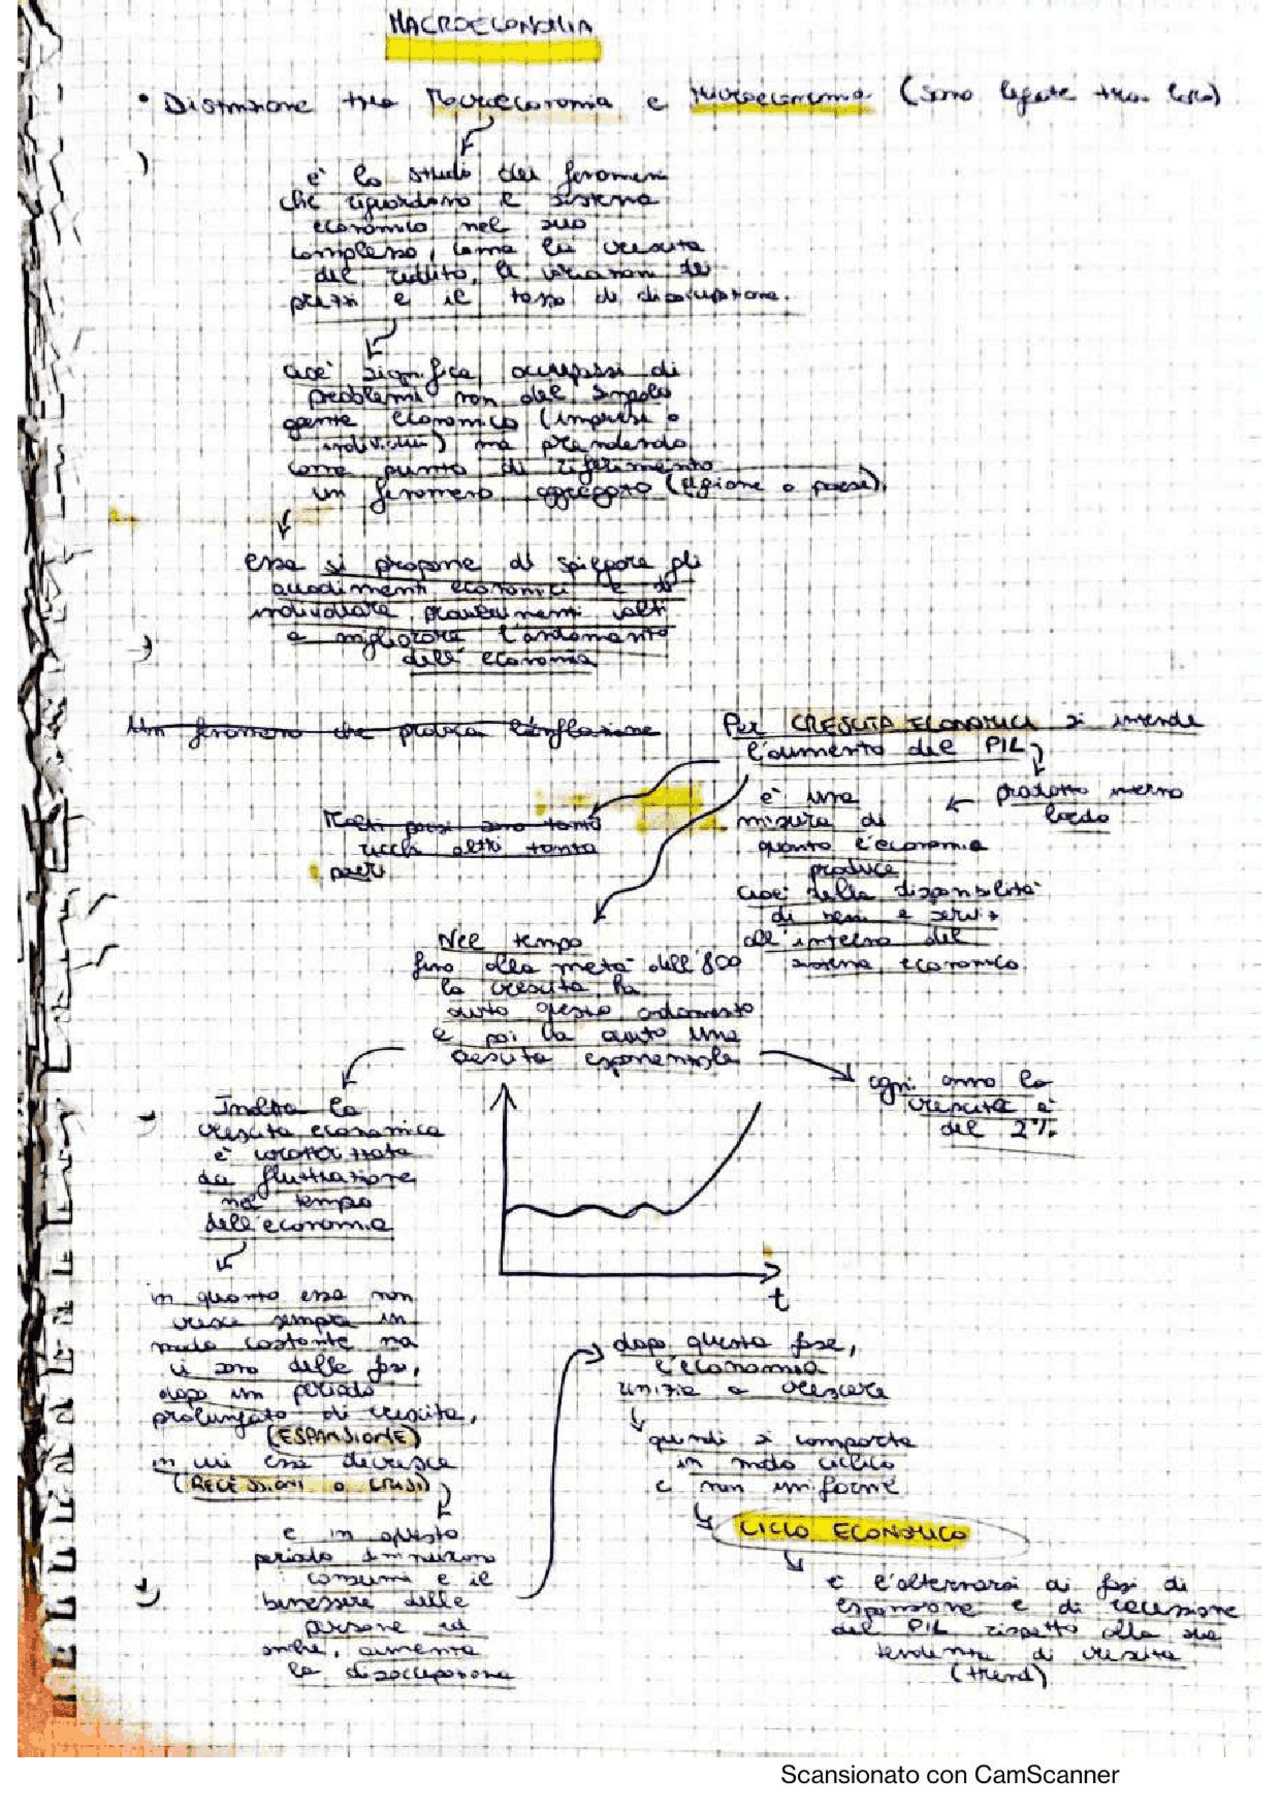 MACROECONOMIA
• Distinzione tra Macroeconomia e Microeconomia (sono legate tra loro)
è lo studio dei fenomeni
che riguardano il sistema
economico nel suo
complesso, come la crescita
del reddito, le variazioni dei
prezzi e il tasso di disoccupazione.
cioè significa occuparsi di
problemi non del singolo
agente economico (imprese o
individui) ma prendendo
come punto di riferimento
un fenomeno aggregato (regione o paese).
essa si propone di spiegare gli
accadimenti economici e di
individuare provvedimenti volti
a migliorare l'andamento
dell'economia
Un fenomeno che provoca l'inflazione
Per CRESCITA ECONOMICA si intende
l'aumento del PIL
prodotto interno
lordo
è una
misura di
quanto l'economia
produce
cioè della disponibilità
di beni e servizi
all'interno del
sistema economico.
Molti paesi sono tanto
ricchi altri tanto
Nel tempo
fino alla metà dell'800
la crescita ha
avuto questo andamento
e poi ha avuto una
crescita esponenziale
ogni anno la
crescita è
del 2%
Inoltre la
crescita economica
è caratterizzata
da fluttuazione
nel tempo
dell'economia
t
in quanto essa non
cresce sempre in
modo costante ma
ci sono delle fasi,
dopo un periodo
prolungato di crescita,
(ESPANSIONE)
in cui essa decresce
(RECESSIONI o CRISI)
e in questo
periodo diminuiscono
consumi e il
benessere delle
persone ed
inoltre, aumenta
la disoccupazione
dopo questa fase,
l'economia
inizia a crescere
quindi si comporta
in modo ciclico
e non uniforme
CICLO ECONOMICO
è l'alternarsi di fasi di
espansione e di recessione
del PIL rispetto alla sua
tendenza di crescita
(trend)
Scansionato con CamScanner